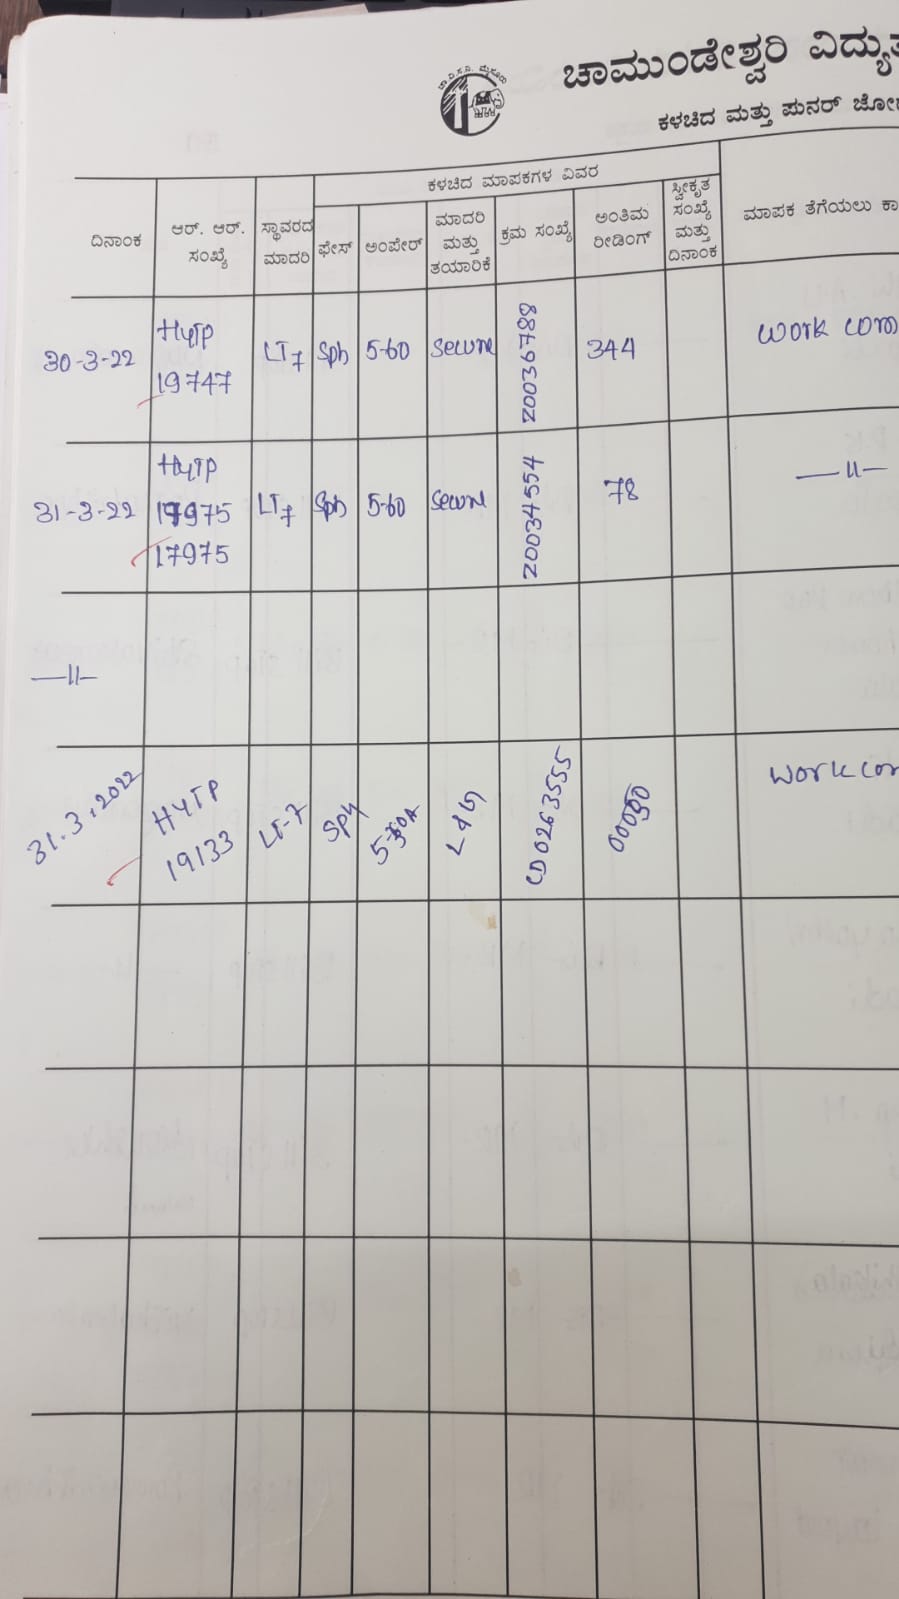 ಚಾ.ವಿ.ಸ.ನಿ. ಮೈಸೂರು
ಚಾಮುಂಡೇಶ್ವರಿ ವಿದ್ಯುತ
ಕಳಚಿದ ಮತ್ತು ಪುನರ್ ಜೋ
ದಿನಾಂಕ
ಆರ್. ಆರ್.
ಸಂಖ್ಯೆ
ಸ್ಥಾವರದ
ಮಾದರಿ
ಕಳಚಿದ ಮಾಪಕಗಳ ವಿವರ
ಫೇಸ್
ಅಂಪೇರ್
ಮಾದರಿ
ಮತ್ತು
ತಯಾರಿಕೆ
ಕ್ರಮ ಸಂಖ್ಯೆ
ಅಂತಿಮ
ರೀಡಿಂಗ್
ಸ್ವೀಕೃತ
ಸಂಖ್ಯೆ
ಮತ್ತು
ದಿನಾಂಕ
ಮಾಪಕ ತೆಗೆಯಲು ಕಾ
30-3-22
HyTP
19747
LT7
Sph
5-60
Secure
20036788
344
work com
31-3-22
HyTP
17975
LT7
Sph
5-60
Secure
20034554
78
—11—
—11—
31.3.2022
HYTP
19133
LT-7
SpH
L&G
CD0263555
work com